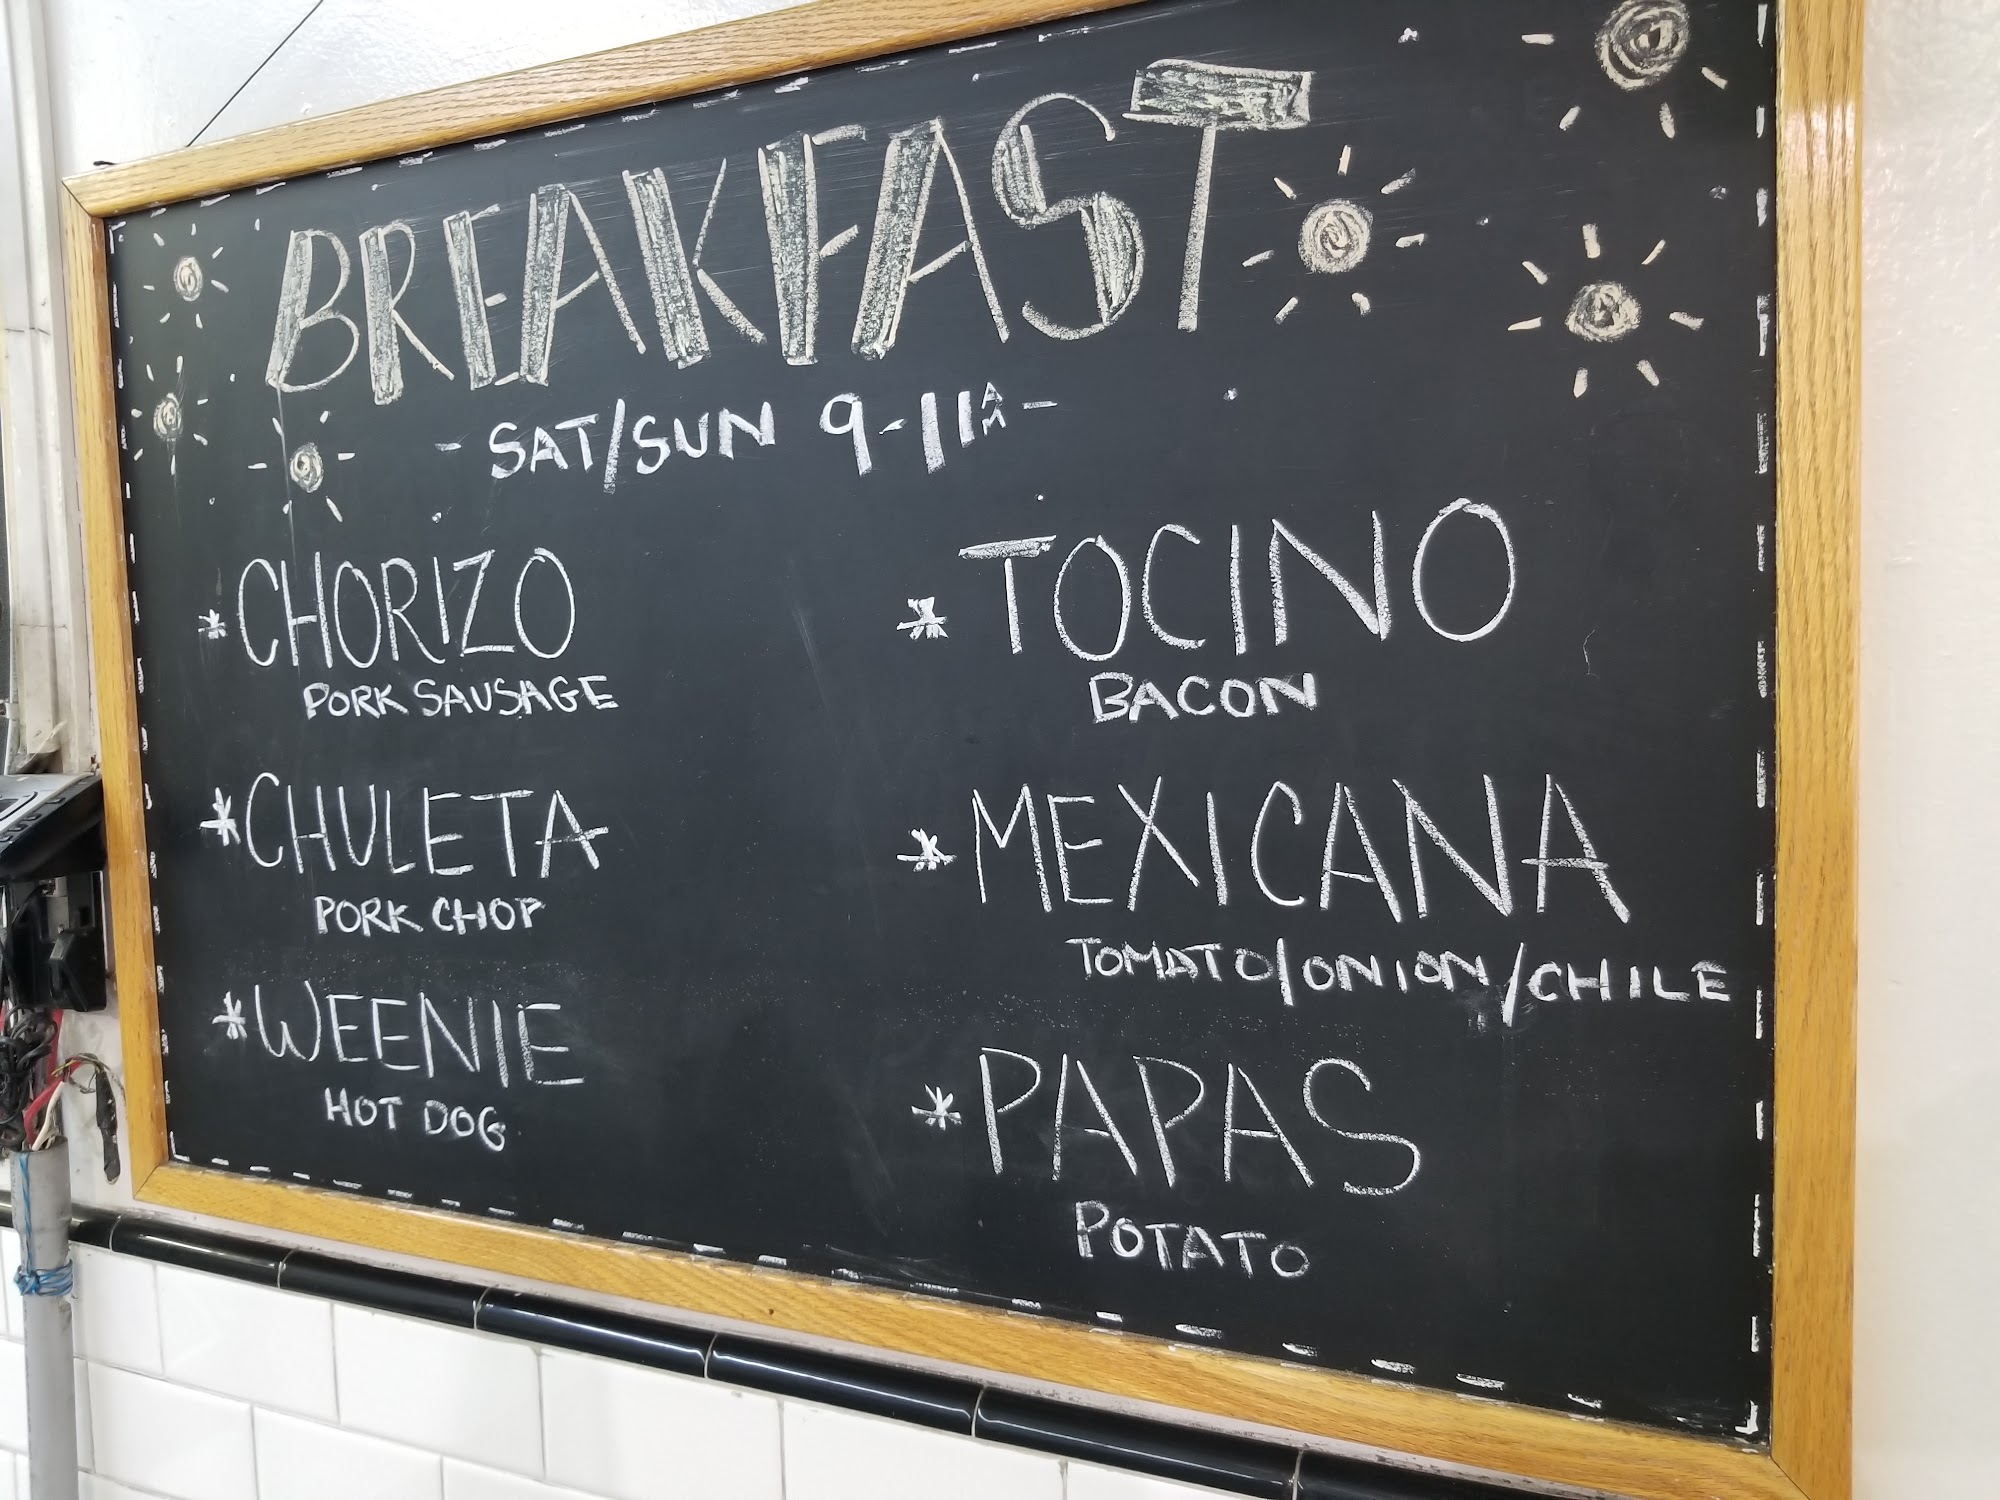 BREAKFAST
- SAT/SUN 9-11AM -
* CHORIZO
PORK SAUSAGE
* CHULETA
PORK CHOP
* WEENIE
HOT DOG
* TOCINO
BACON
* MEXICANA
TOMATO/ONION/CHILE
* PAPAS
POTATO